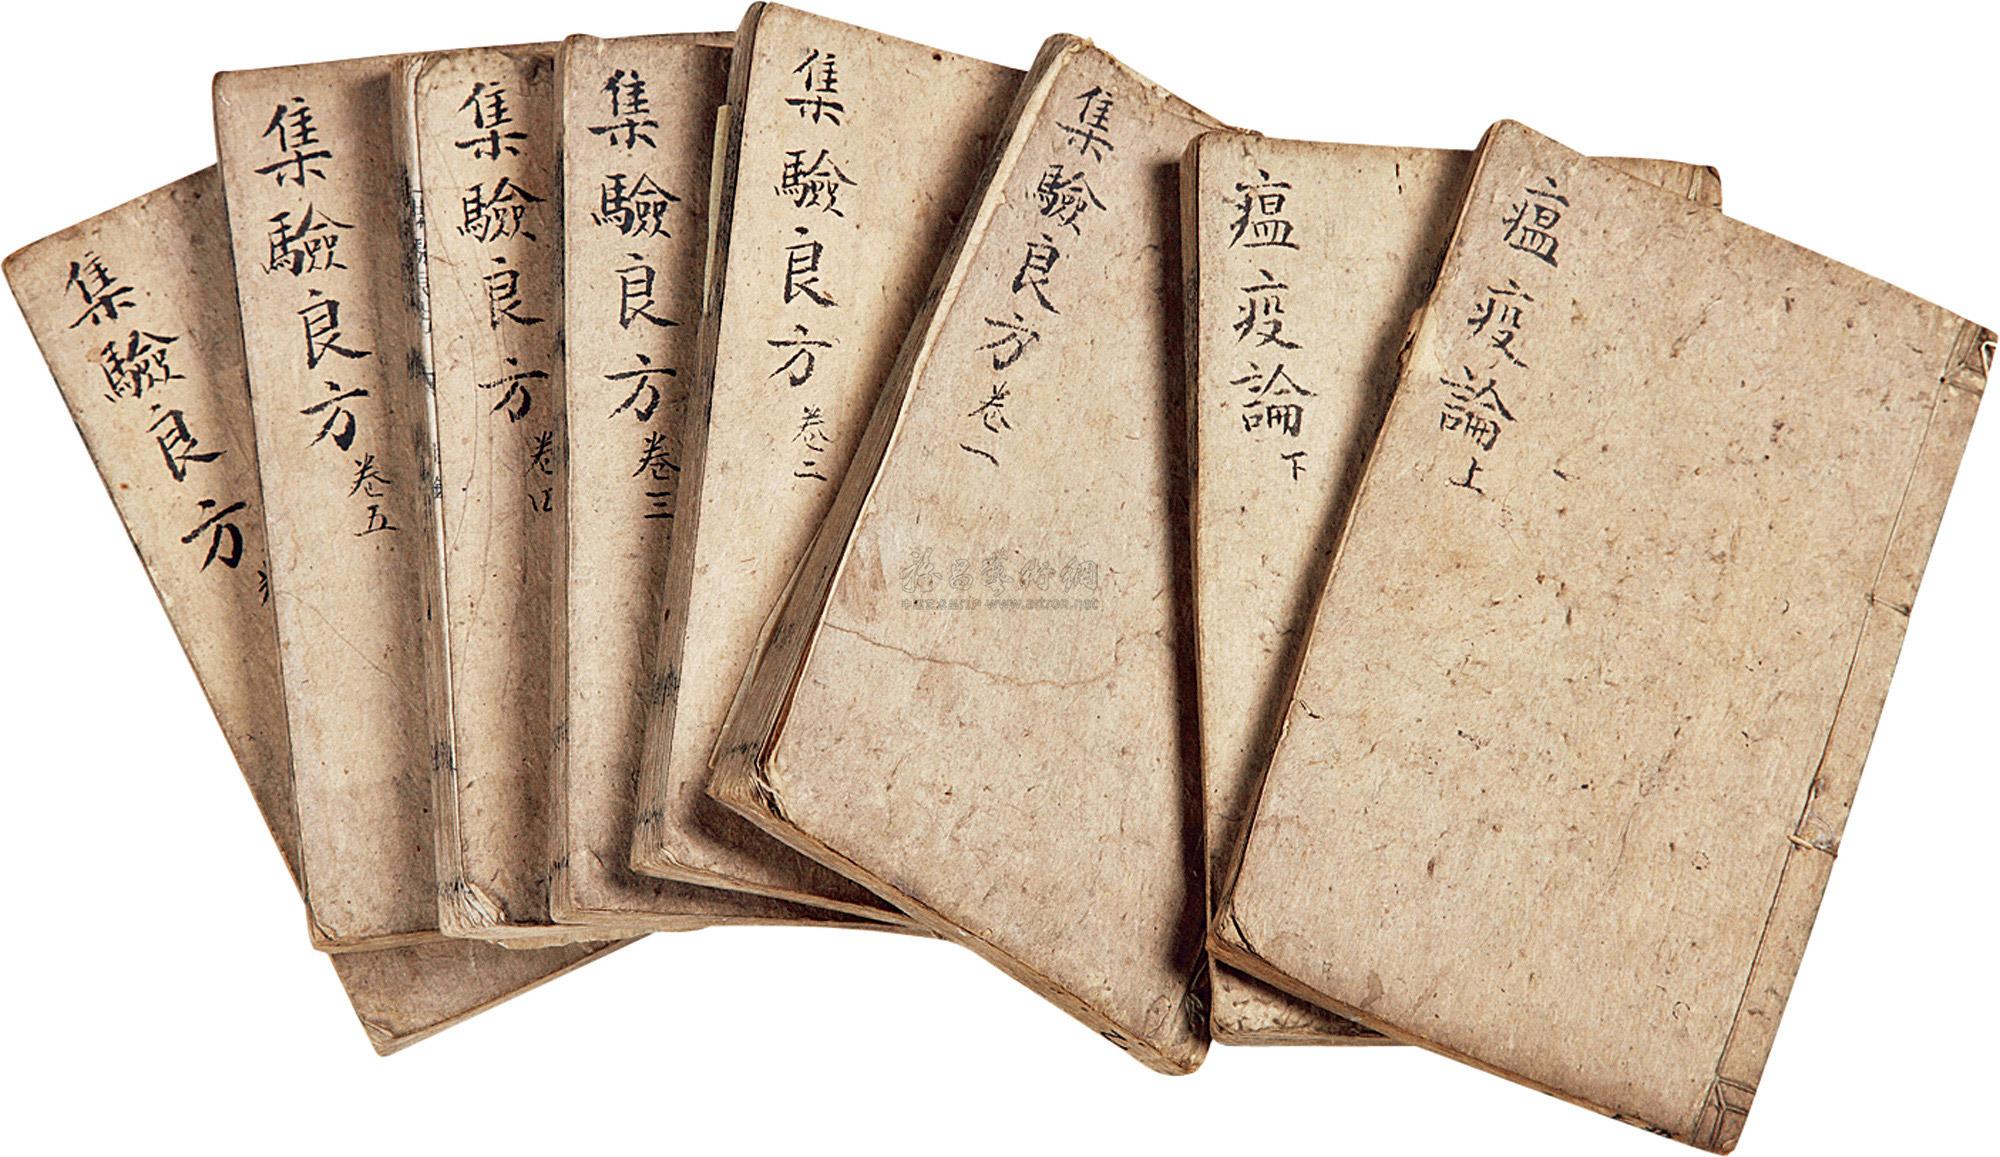 瘟疫論上
瘟疫論下
集驗良方卷一
集驗良方卷二
集驗良方卷三
集驗良方卷四
集驗良方卷五
集驗良方
雅昌藝術網
www.artron.net